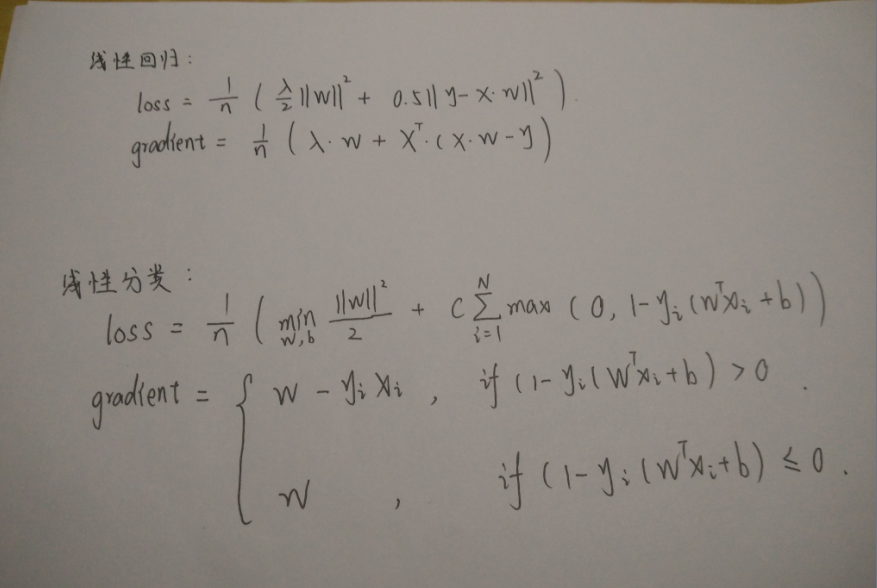 线性回归:
loss = 1/n ( λ/2 ||W||² + 0.5|| y - X·W||² ).
gradient = 1/n ( λ·W + Xᵀ·(X·W - y)
线性分类:
loss = 1/n ( min_{W,b} ||W||²/2 + C ∑_{i=1}^{N} max ( 0, 1 - y_i (Wᵀx_i + b))
gradient = { W - y_i x_i , if (1 - y_i (Wᵀx_i + b) > 0 .
W , if (1 - y_i (Wᵀx_i + b) ≤ 0 .